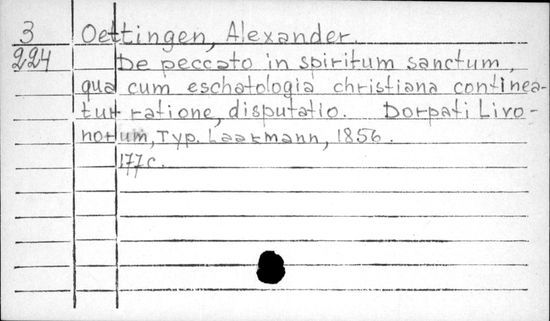 3 Oettingen, Alexander.
224 De peccato in spiritum sanctum,
qua cum eschatologia christiana continea-
tur ratione, disputatio. Dorpati Livo-
norum, Typ. Laakmann, 1856.
177 c.